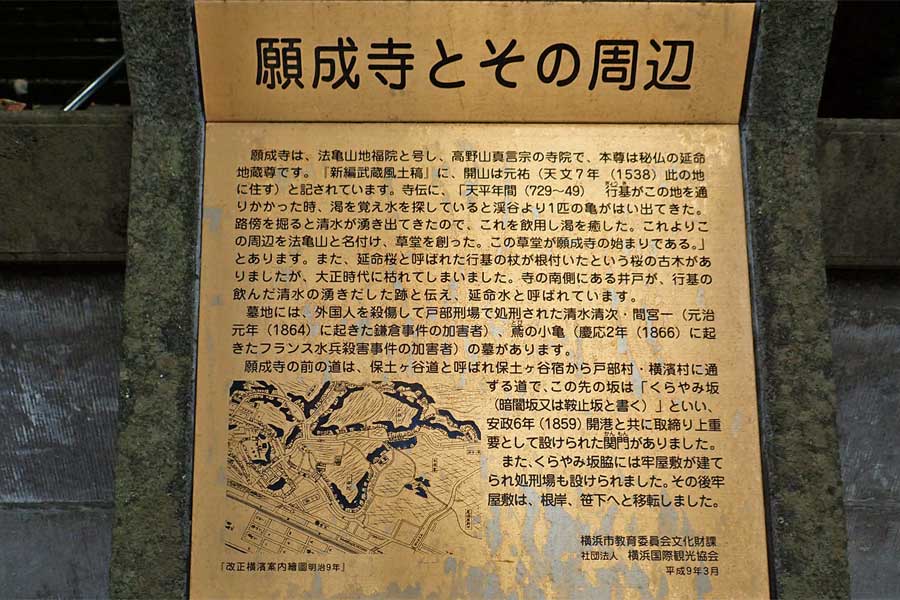 願成寺とその周辺
願成寺は、法亀山地福院と号し、高野山真言宗の寺院で、本尊は秘仏の延命
地蔵尊です。『新編武蔵風土稿』に、開山は元祐（天文7年（1538）此の地
に住す）と記されています。寺伝に、「天平年間（729～49） 行基がこの地を通
りかかった時、渇を覚え水を探していると渓谷より1匹の亀がはい出てきた。
路傍を掘ると清水が湧き出てきたので、これを飲用し渇を癒した。これよりこ
の周辺を法亀山と名付け、草堂を創った。この草堂が願成寺の始まりである。」
とあります。また、延命桜と呼ばれた行基の杖が根付いたという桜の古木があ
りましたが、大正時代に枯れてしまいました。寺の南側にある井戸が、行基の
飲んだ清水の湧きだした跡と伝え、延命水と呼ばれています。
墓地には、外国人を殺傷して戸部刑場で処刑された清水清次・間宮一（元治
元年（1864）に起きた鎌倉事件の加害者）、鳶の小亀（慶応2年（1866）に起
きたフランス水兵殺害事件の加害者）の墓があります。
願成寺の前の道は、保土ヶ谷道と呼ばれ保土ヶ谷宿から戸部村・横濱村に通
ずる道で、この先の坂は「くらやみ坂
（暗闇坂又は鞍止坂と書く）」といい、
安政6年（1859）開港と共に取締り上重
要として設けられた関門がありました。
また、くらやみ坂脇には牢屋敷が建て
られ処刑場も設けられました。その後牢
屋敷は、根岸、笹下へと移転しました。
横浜市教育委員会文化財課
社団法人 横浜国際観光協会
平成9年3月
「改正横濱案内繪圖明治9年」